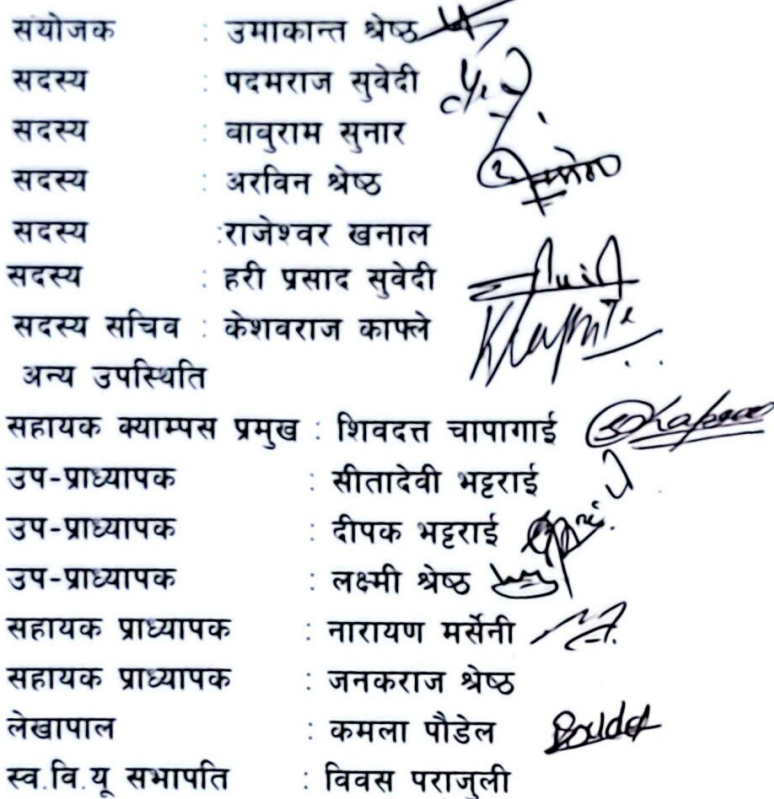 संयोजक : उमाकान्त श्रेष्ठ
सदस्य : पदमराज सुवेदी
सदस्य : वावुराम सुनार
सदस्य : अरविन श्रेष्ठ
सदस्य :राजेश्वर खनाल
सदस्य : हरी प्रसाद सुवेदी
सदस्य सचिव : केशवराज काफ्ले
अन्य उपस्थिति
सहायक क्याम्पस प्रमुख : शिवदत्त चापागाई
उप-प्राध्यापक : सीतादेवी भट्टराई
उप-प्राध्यापक : दीपक भट्टराई
उप-प्राध्यापक : लक्ष्मी श्रेष्ठ
सहायक प्राध्यापक : नारायण मर्सेनी
सहायक प्राध्यापक : जनकराज श्रेष्ठ
लेखापाल : कमला पौडेल
स्व.वि.यू सभापति : विवस पराजुली